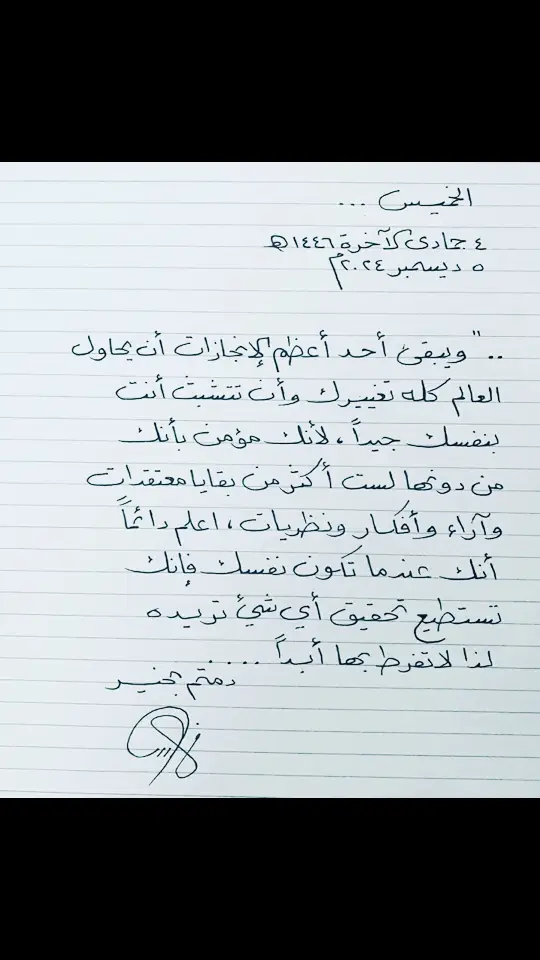 الخميس ...
٤ جمادى الآخرة ١٤٤٦هـ
٥ ديسمبر ٢٠٢٤م
.. " ويبقى أحد أعظم الإنجازات أن يحاول
العالم كله تغييرك وأن تتشبث أنت
بنفسك جيداً ، لأنك مؤمن بأنك
من دونها لست أكثر من بقايا معتقدات
وآراء وأفكار ونظريات ، اعلم دائماً
أنك عندما تكون نفسك فإنك
تستطيع تحقيق أي شئ تريده
لذا لا تفرط بها أبداً .....
دمتم بخير